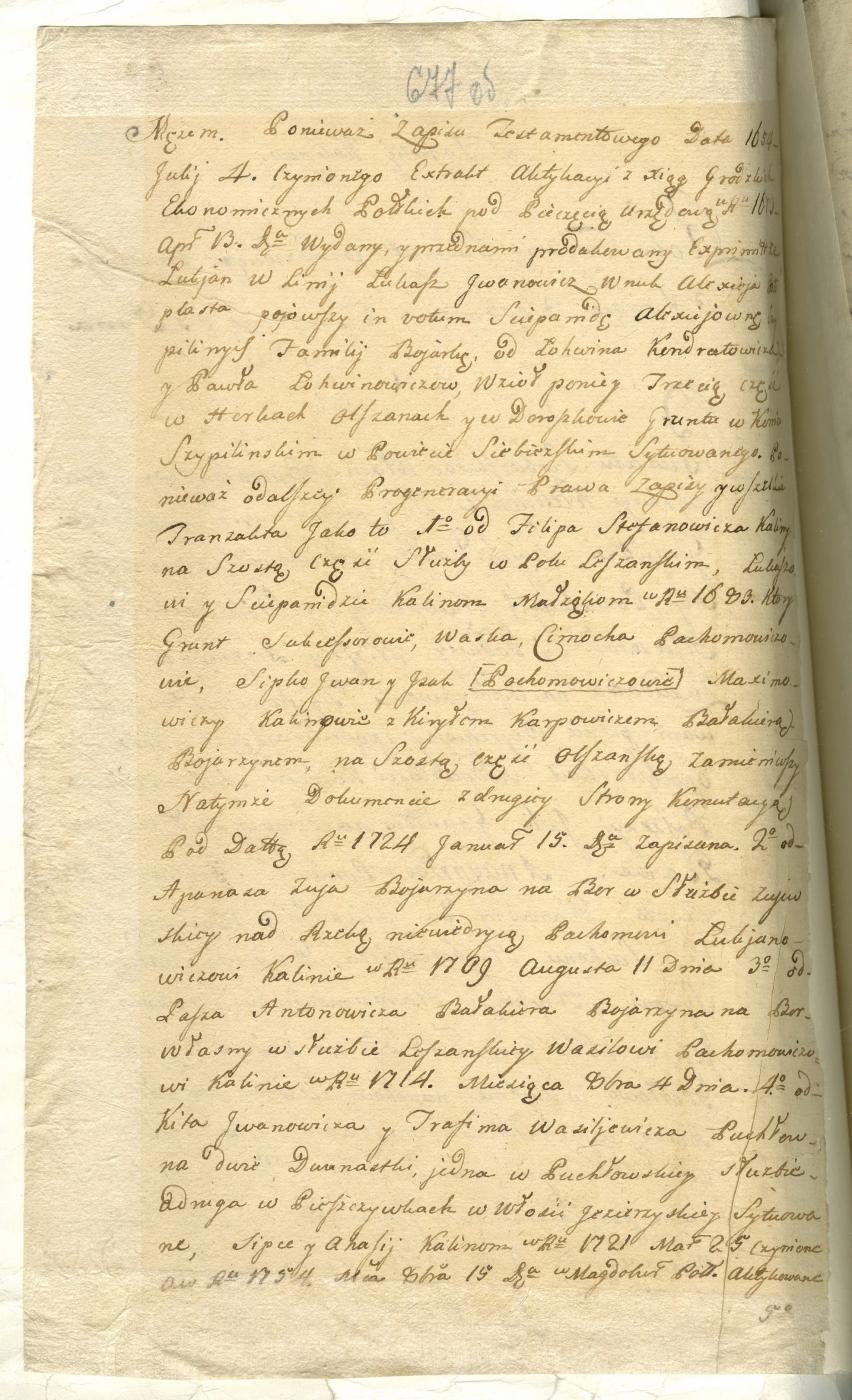 677 od
Męzem. Ponieważ Zapisu Testamentowego Data 1654
Julij 4. Czynionego Extrakt Aktykacyi z xiąg Grodzkich
Ekonomicznych Połockich pod Pieczęcią Urzędową w Ru
Apr 13. Dnia Wydany, y przed nami produkowany Exprimit że
Lubjan w Linij Łukasz Jwanowicz Wnuk Alexieja
płasta pojowszy in votum Sciepamidę Alexiejownę
pilinych Familij Bojarkę, od Lohwina Kondratowicza
y Pawła Lohwinowiczow, Wzioł poniey Trzecią część
w Herbach Olszanach y w Doroszkowie Gruntu w
Szypilinskim w Powiecie Siebieżskim Sytuowanego. Po-
nieważ odalszey Progeneracyi Prawa Zapisy y wszelkie
Tranzakta Jako to 1o od Filipa Stefanowicza Kaliny
na Szostą część Służby w Polu Leszanskim, Łukaszo
wi y Sciepamidzie Kalinom Małżąkom w Ru 1683. Ktory
Grunt Sukcessorowie, Waska, Cimocha Pachomowiczo-
wie, Sipko Jwan y Jzak [Pachomowiczowie] Maximo-
wiczy Kalinowie z Kiryłem Karpowiczem Bałakirą
Bojarzynem, na Szostą część Olszanską zamieniwszy
Natymże Dokumencie z drugiey Strony Komutacyą
Pod Dattą Ru 1724 Januar 15. Dnia Zapisana. 2o od-
Apanasa Zuja Bojarzyna na Bor w Służbie Zujow
skiey nad Rzeką niewiedrycą Pachomowi Lubjano-
wiczowi Kalinie w Ru 1709 Augusta 11 Dnia 3o od-
Łasza Antonowicza Bałakiera Bojarzyna na Bor-
własny w służbie Leszanskiey Wasilowi Pachomowiczo-
wi Kalinie w Ru 1714. Miesiąca 8bra 4 Dnia. 4o od-
Kita Jwanowicza y Trafima Wasiljewicza Puchłow-
na dwie Dwunastki, jedna w Puchłowskiey służbie-
adruga w Pieszczywkach w Włości Jezierzyskiey Sytuowa
ne, Sipce y Anasij Kalinom w Ru 1721 Mar 25 Czynione
a w Ru 1754. Mca 8bra 15 Dnia w Magdebur Poł. Aktykowane
5o